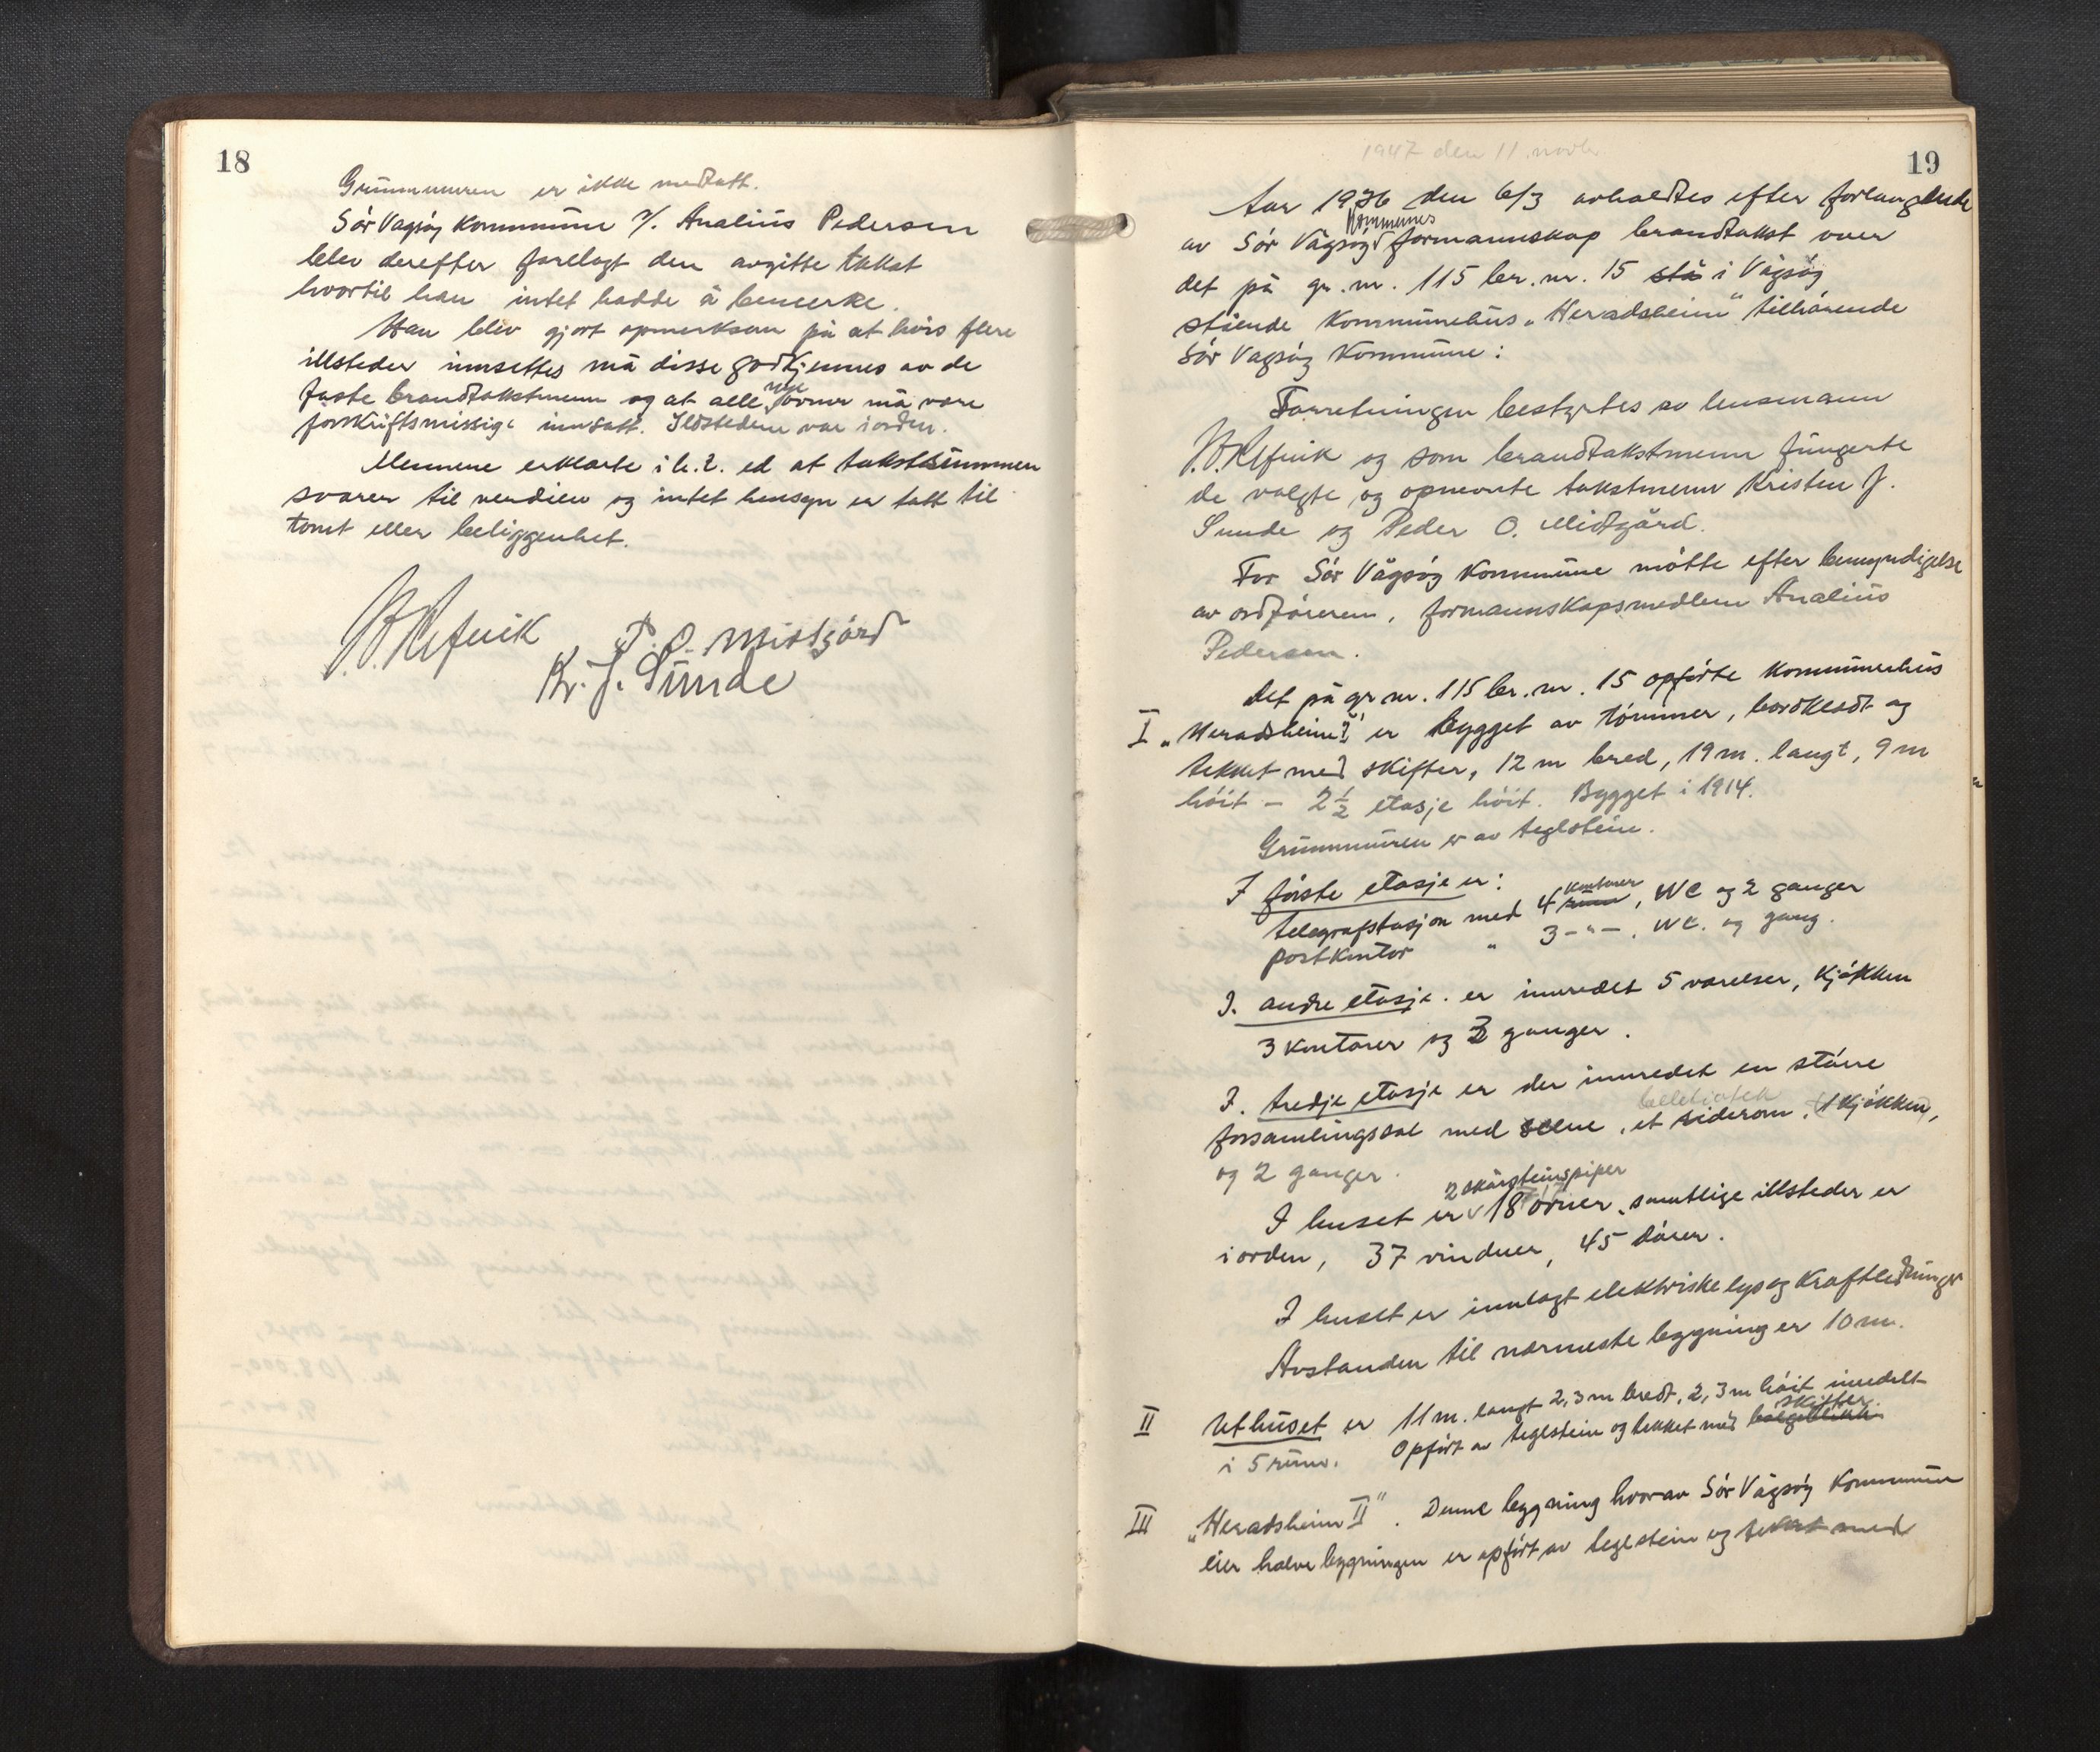 18
Grunnmuren er ikke medtatt.
Sör Vagsöy Kommune v/. Analius Pedersen
blev derefter forelagt den avgitte takst
hvortil han intet hadde å bemerke.
Han blev gjort opmerksom på at hvis flere
illsteder innsettes må disse godkjennes av de
faste brandtakstmenn og at alle nye ovner må være
forskriftsmessige innsatt. Ildstedene var iorden.
Mennene erklærte i h. t. ed at takstsummen
svarer til verdien og intet hensyn er tatt til
tomt eller beliggenhet.
P. O. Midtgård
Kr. J. Sunde
1947 den 11. novbr
19
Aar 1936 den 6/3 avholdtes efter forlangende
av Sör Vågsöy Kommunes formannskap brandtakst over
det på gr. nr. 115 br. nr. 15 stå i Vågsöy
stående Kommunehus „Heradsheim" tilhörende
Sör Vagsöy Kommune:
Forretningen bestyrtes av lensmann
og som brandtakstmenn fungerte
de valgte og opnevnte takstmenn Kristen J.
Sunde og Peder O. Midtgård.
For Sör Vågsöy Kommune mötte efter bemyndigelse
av ordföreren, formannskapsmedlem Analius
Pedersen.
Det på gr. nr. 115 br. nr. 15 opförte Kommunehus
I „Heradsheim I" er bygget av tömmer, bordkledt og
tekket med skifter, 12 m bred, 19 m. langt, 9 m
höit – 2 ½ etasje höit. Bygget i 1914.
Grunnmuren er av teglstein.
I förste etasje er:
telegrafstasjon med 4 rum kontorer, WC og 2 ganger
postkontor " 3 –"–, WC. og gang.
I. andre etasje. er innredet 5 værelser, kjökken
3 kontorer og 3 ganger.
I. tredje etasje er der innredet en större
forsamlingssal med scene, et siderom bibliotek, (1 kjökken),
og 2 ganger.
I huset er 2 skorsteinspiper 18 ovner, samtlige illsteder er
i orden, 37 vinduer, 45 dörer.
I huset er innlagt elektriske lys og kraftledninger
Avstanden til nærmeste bygning er 10 m.
II Uthuset er 11 m. langt 2,3 m bredt, 2,3 m höit inndelt
i 5 rum. Opfört av teglstein og tekket med bølgeblikk skifter.
III „Heradsheim II". Denne bygning hvorav Sör Vågsöy Kommune
eier halve bygningen er opfört av teglstein og tekket med